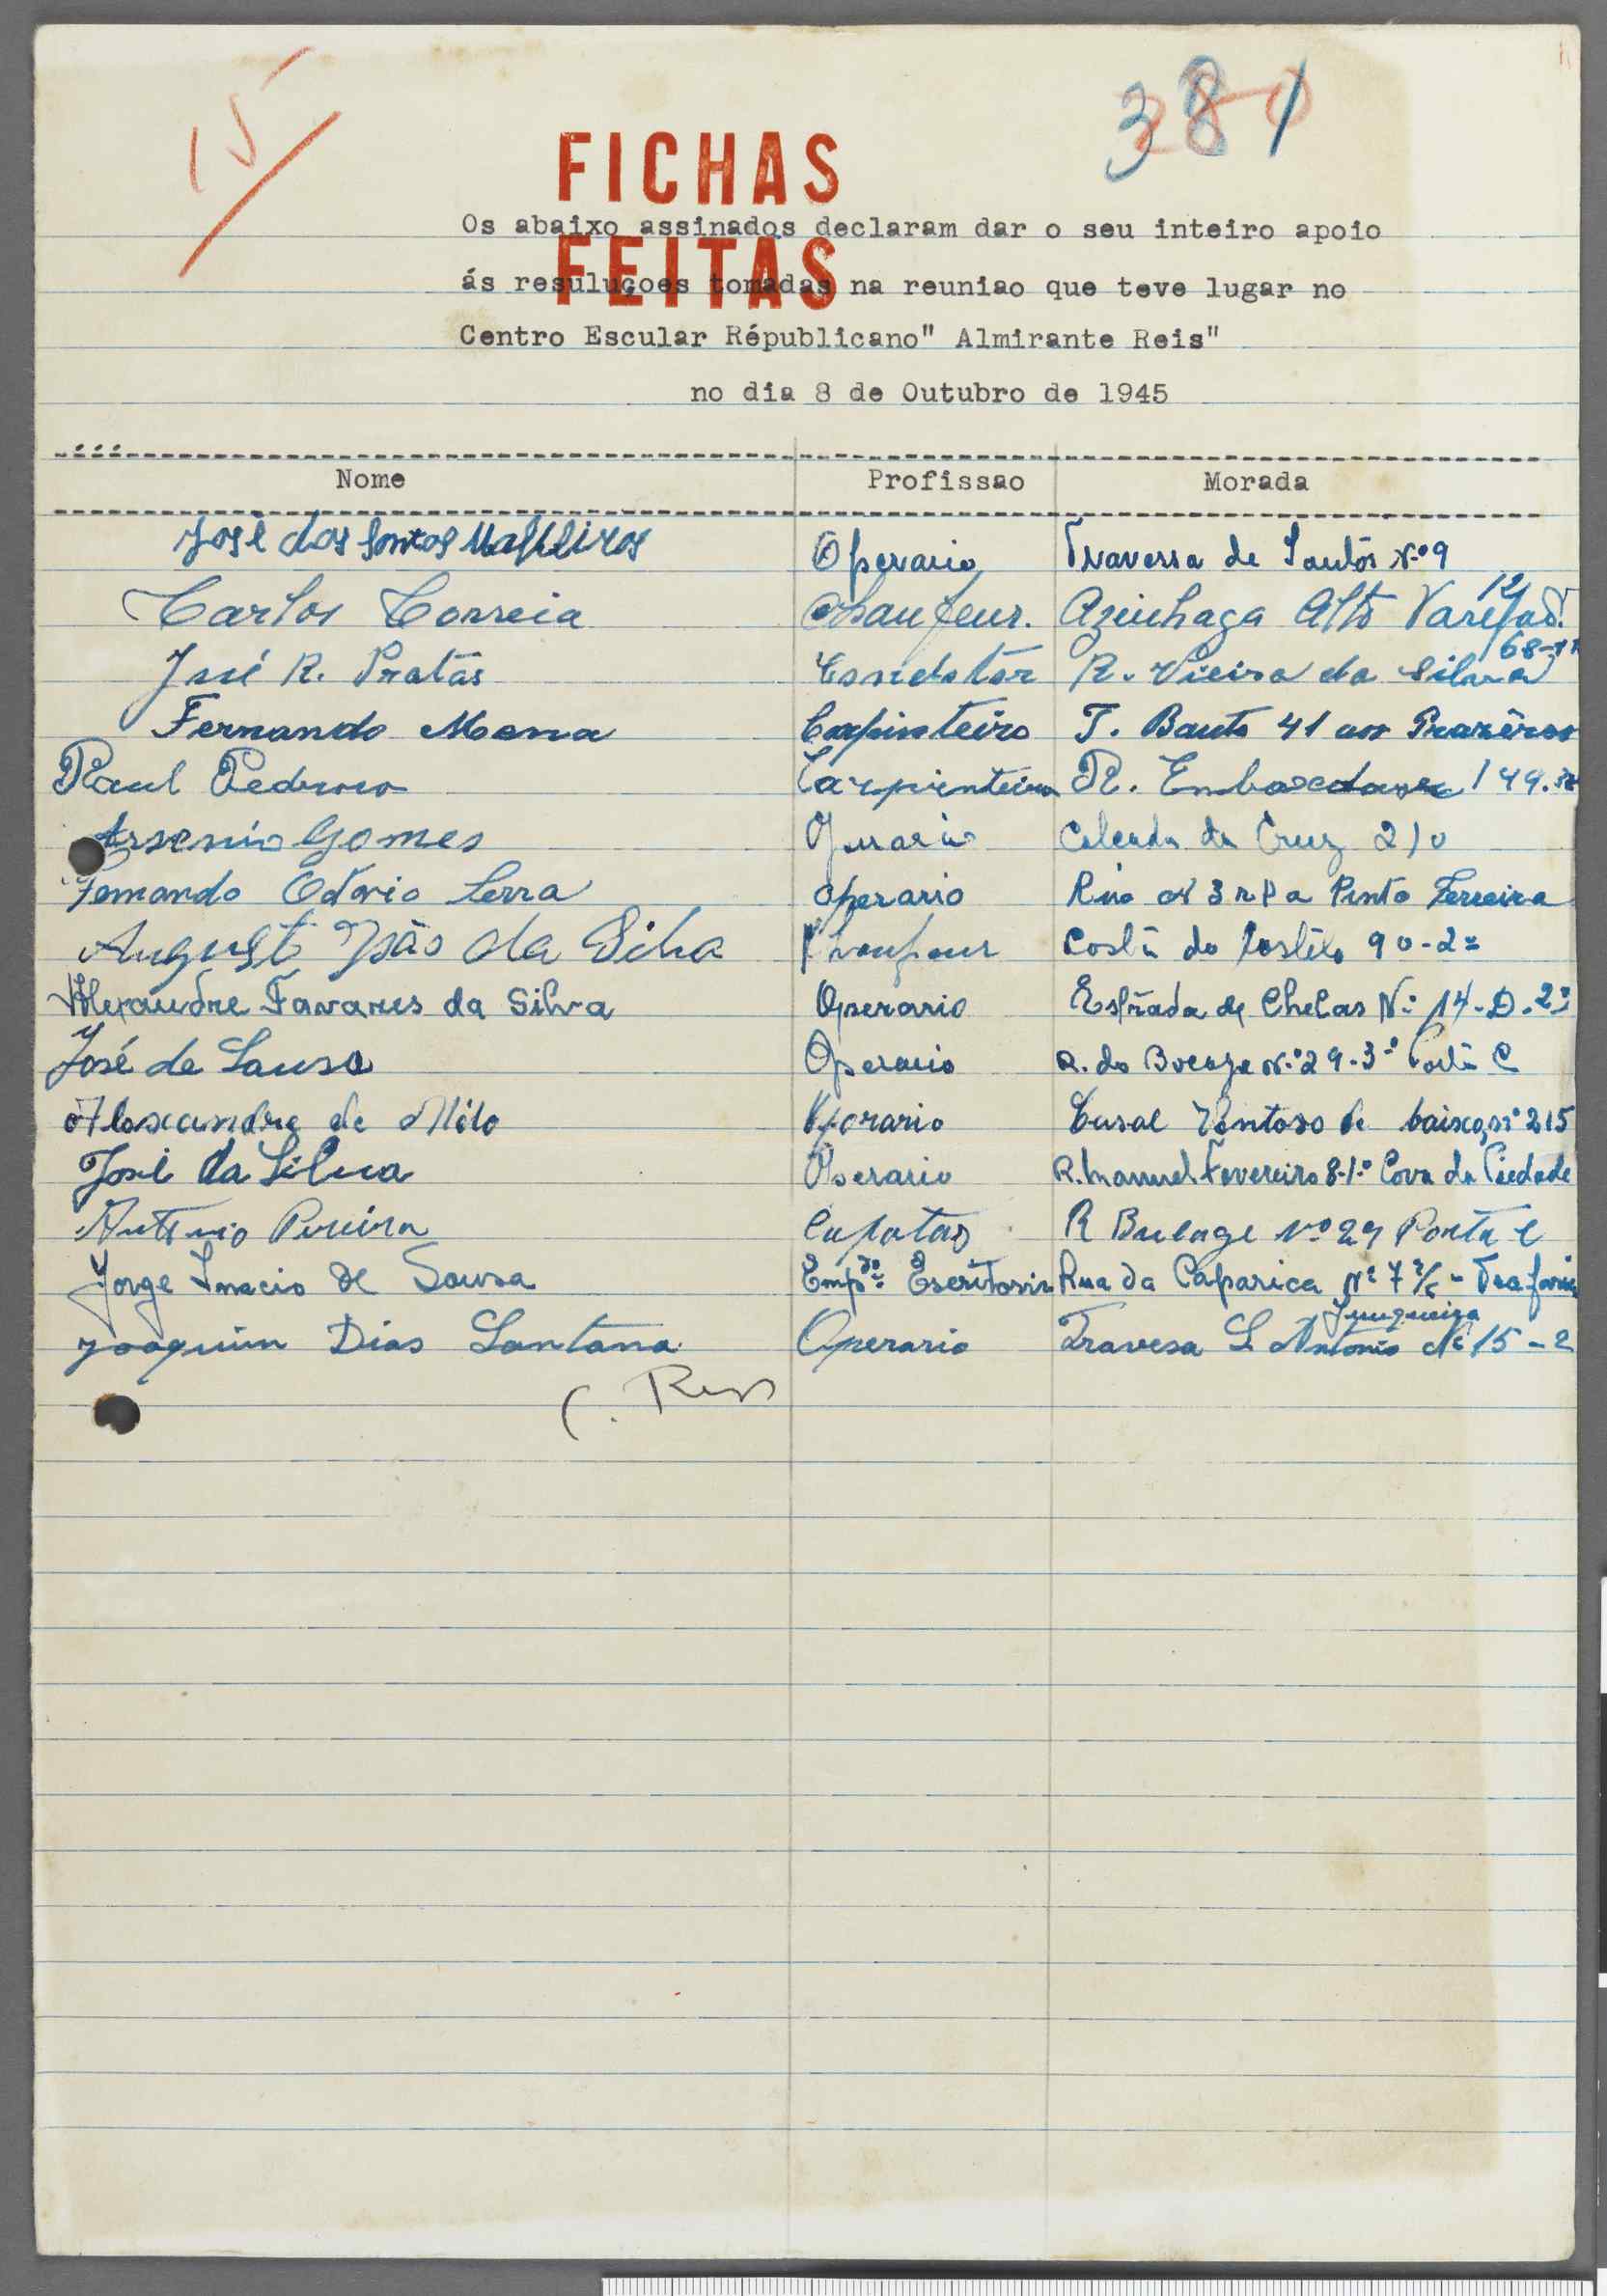 15
381
FICHAS
Os abaixo assinados declaram dar o seu inteiro apoio
FEITAS
ás resuluçoes tomadas na reuniao que teve lugar no
Centro Escular Républicano" Almirante Reis"
no dia 8 de Outubro de 1945
Nome Profissao Morada
José dos Santos Operario Travessa de Santos Nº 9
Carlos Correia Chaufeur. Azinhaga Alto 12
José R. Pratas R. Vieira da Silva 68
Fernando Mena Carpinteiro T. 41 aos Prazêres
Raul Pedroso Carpinteiro R. 149
Arsenio Gomes Operario Calçada da Cruz
Fernando Otávio Serra operario Rua Nº 3 Pinto Ferreira
August João da Silva Costa do Castelo 90-2º
Alexandre Tavares da Silva Operario Estrada de Chelas Nº 14-D-2º
José de Sousa Operario R. do Bocage Nº 29-3º Porta C
Alexandre de Milo Operario Casal Ventoso de baixo, nº 215
José da Silva Operario R. Manuel Fevereiro 8-1º Cova da Piedade
Antonio Pereira Capataz R Bucage Nº 29 Porta C
Jorge Inacio de Sousa Empdº Escritorio Rua da Caparica Nº 7 - Trafaria
Junqueira
Joaquim Dias Santana Operario Travesa S. Antonio Nº 15-2